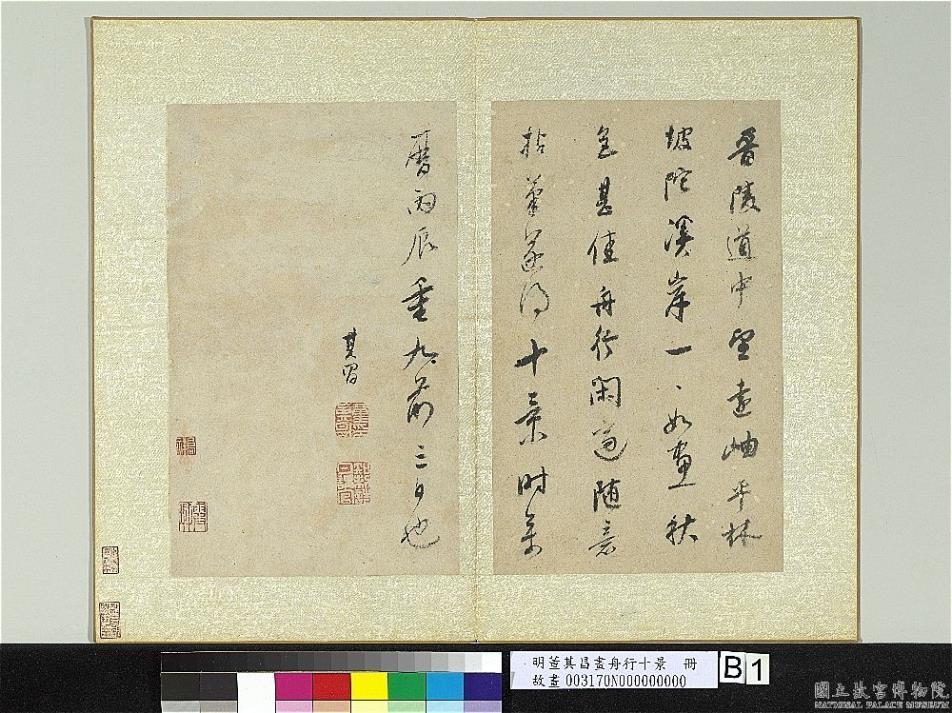 晉陵道中望遠岫平林
坡陀溪岸一一如畫秋
色甚佳舟行閑適隨意
拈筆遂得十景時萬
曆丙辰重九前三日也
其昌
明董其昌畫舟行十景 冊
故畫003170N000000000
B1
國立故宮博物院
NATIONAL PALACE MUSEUM